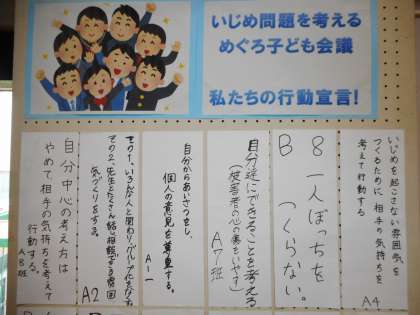 いじめ問題を考える
めぐろ子ども会議
私たちの行動宣言！
いじめを起こさない雰囲気を
つくるために、相手の気持ちを
考えて行動する
A4
8 一人ぼっちを
B つくらない。
自分達にできることを考える
(被害者の心の傷をいやす)
A7班
自分からあいさつをし、
個人の意見を尊重する。
A-1
その1、いろんな人と関わり
その2、先生とたくさん話し相談できる雰囲
気づくりをする。
A2
自分中心の考え方は
やめて相手の気持ちを考えて
行動する。
A8班